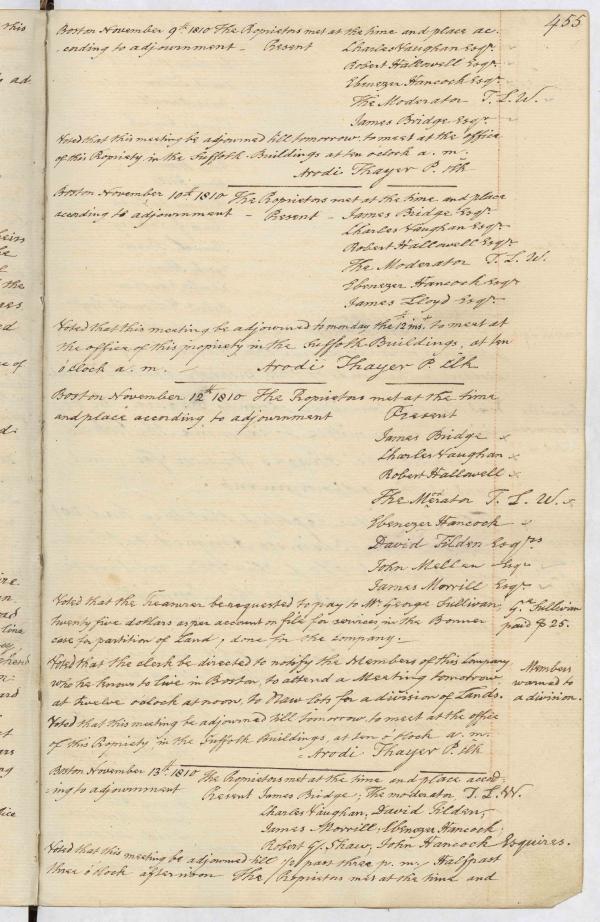 455
Boston November 9th 1810 The Propietors met at the time and place ac-
cording to adjournment - Present Charles Vaughan Esqr.
Robert Hallowell Esqr.
Ebenezer Hancock Esqr.
The Moderator T. L. W.
James Bridge Esqr.
Voted that this meeting be adjourned till tomorrow, to meet at the office
of this Propiety in the Suffolk Buildings at ten oclock a. m.
Arodi Thayer P. Clk
Boston November 10th 1810 The Propietors met at the time and place
according to adjournment - Present - James Bridge Esqr
Charles Vaughan Esqr
Robert Hallowell Esqr
The Moderator T. L. W.
Ebenezer Hancock Esqr
James Lloyd Esqr.
Voted that this meeting be adjourned to monday the 12th inst. to meet at
the office of this propiety in the Suffolk Buildings, at ten
o'clock a. m. Arodi Thayer P. Clk
Boston November 12th 1810 The Propietors met at the time
and place according to adjournment Present
James Bridge
Charles Vaughan
Robert Hallowell
The Merator T. L. W.
Ebenezer Hancock
David Tilden Esqrs
John Mellen Esqr
James Morrill Esqr.
Voted that the Treasurer be requested to pay to Mr. George Sullivan,
twenty five dollars as per account on file for services in the Bonner
case for partition of Land, done for the company.
Geo. Sullivan
paid $25.
Voted that the Clerk be directed to notify the Members of this Company
who he knows to live in Boston, to attend a Meeting tomorrow
at twelve oclock at noon, to Draw lots for a division of Lands.
Members
warned to
a division.
Voted that this meeting be adjourned till tomorrow, to meet at the office
of this Propiety in the Suffolk Buildings, at ten o'clock a. m.
Arodi Thayer P. Clk
Boston November 13th. 1810 The Propietors met at the time and place accord-
ing to adjournment Present James Bridge, The moderator T. L. W.
Charles Vaughan, David Tilden,
James Morrill, Ebenezer Hancock,
Robert G. Shaw, John Hancock Esquires.
Voted that this meeting be adjourned till 1/2 past three p. m. Half past
three o'clock afternoon The Propietors met at the time and